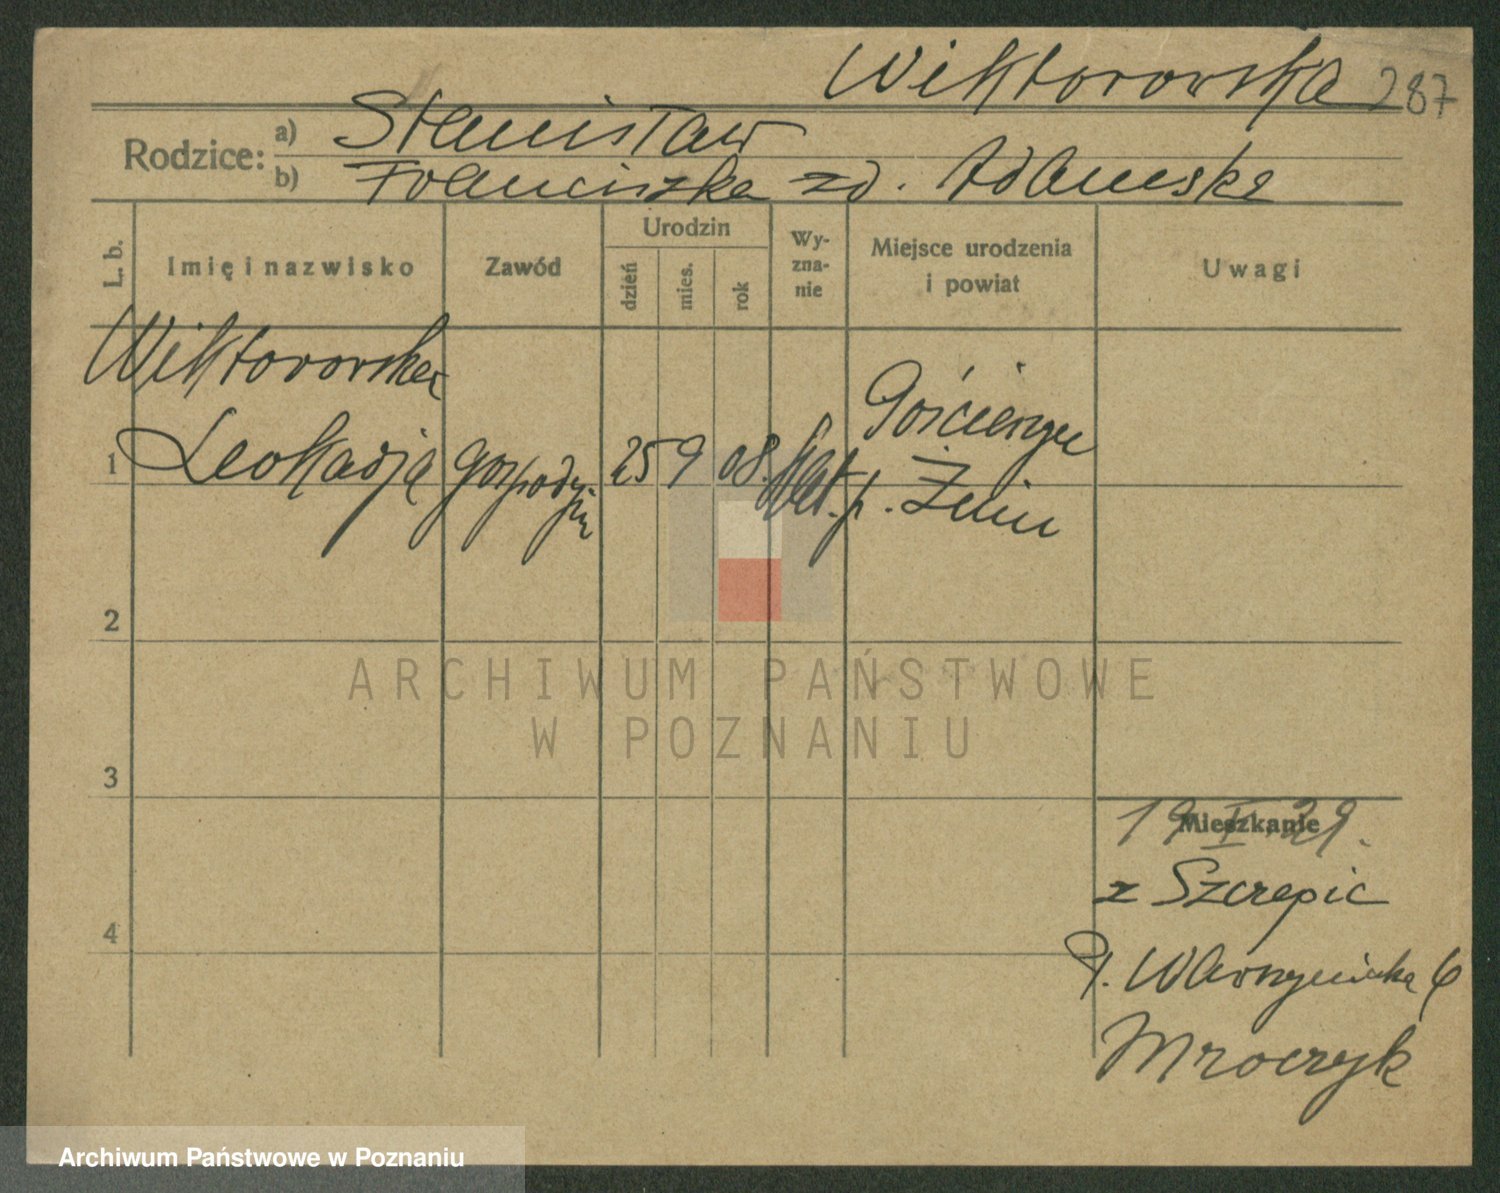 Wiktorowska 287
Rodzice: a) Stanisław
b) Franciszka zd. Adamska
L. b. Imię i nazwisko Zawód Urodzin dzień mies. rok Wy-zna-nie Miejsce urodzenia i powiat Uwagi
Wiktorowska
1 Leokadja gospodyni 25 9 08. kat. Gościeszyn
p. Żnin
2
ARCHIWUM PAŃSTWOWE
W POZNANIU
3
Mieszkanie
19 I 29.
z Szczepic
4
Wawrzyniaka 6
Mroczyk
Archiwum Państwowe w Poznaniu